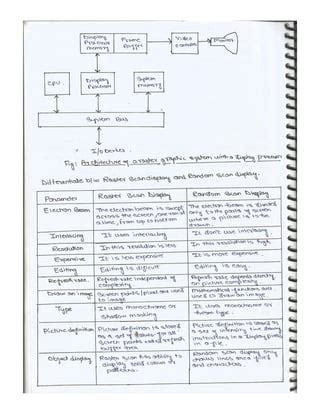 Display Processor memory
Frame Buffer
Video controller
Monitor
CPU
Display Processor
System memory
System Bus
I/O Devices
Fig: Architecture of a raster graphic system with a display processor
Differentiate b/w Raster Scan display and Random Scan display.
Parameter | Raster Scan Display | Random Scan Display
Electron Beam | The electron beam is swept across the screen, one row at a time, from top to bottom | The electron beam is directed only to the parts of screen where a picture is to be drawn.
Interlacing | It uses interlacing | It don't use interlacing.
Resolution | In this resolution is less | In this resolution is high
Expensive | It is less expensive | It is more expensive.
Editing | Editing is difficult | Editing is easy.
Refresh rate | Refresh rate independent of complexity | Refresh rate depends directly on picture complexity.
Draw an image | Screen points/pixel are used to image | Mathematical functions are used to draw an image.
Type | It uses monochrome or shadow masking | It uses monochrome or type.
Picture definition | Picture definition is stored as a set of values for all screen points called refresh buffer area | Picture definition is stored as a set of line drawing instructions in a display file.
Object display | Raster scan has ability to display solid colour or patterns. | Random scan display only draws lines and characters.